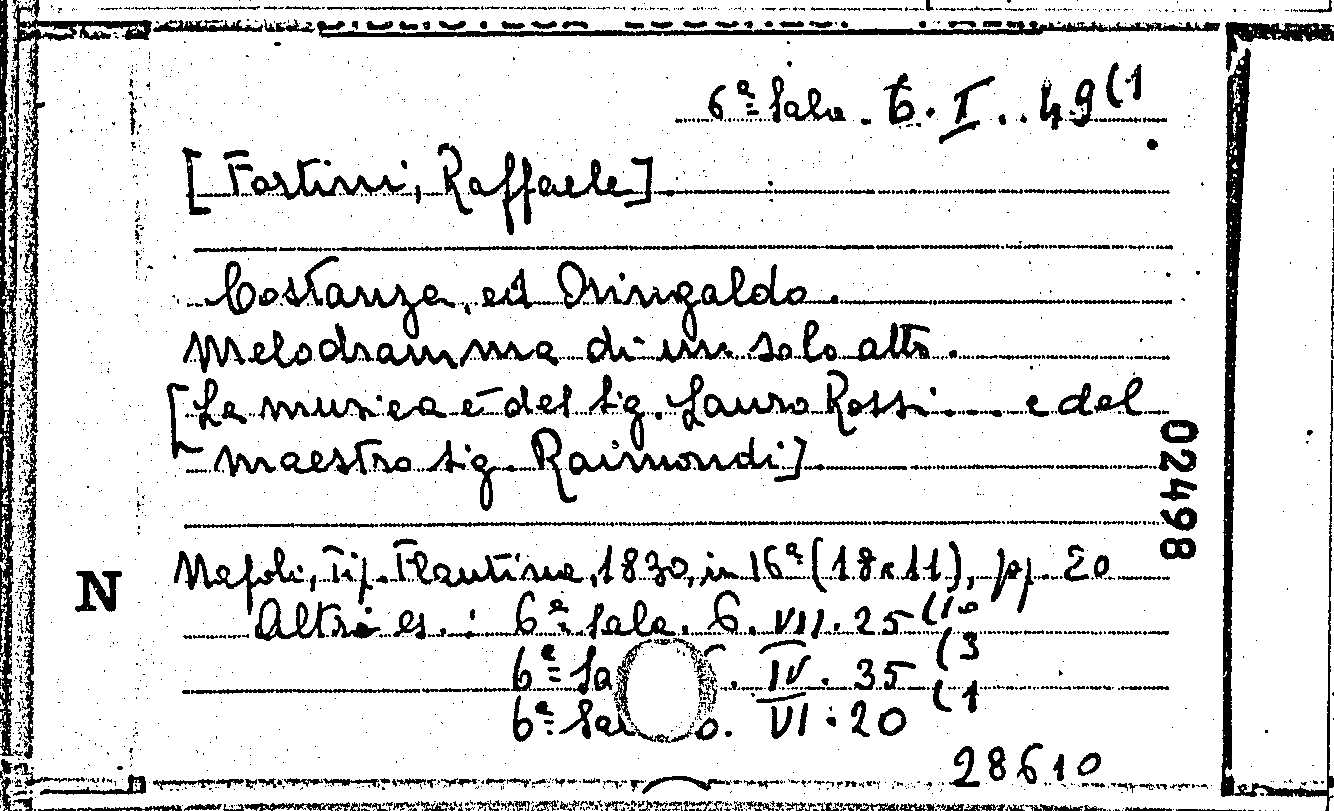 6ª Sala. 6. I. . 49 (1
[Fortini, Raffaele].
Costanza, ed Oringaldo.
Melodramma di un solo atto.
[La musica è del sig. Lauro Rossi.... e del
maestro sig. Raimondi].
Napoli, Tip. Flautina, 1830, in 16ª (18x11), pp. 20
Altri es. : 6ª Sala. 6. VII. 25 (10
6ª Sa . IV. 35 (3
6ª Sa . VI. 20 (1
28610
N
02498